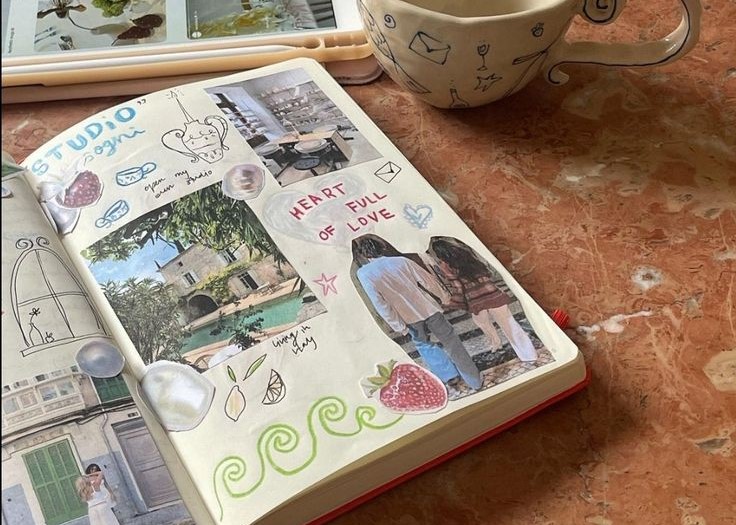 STUDIO"
ogni
open my
own studio
HEART FULL
OF LOVE
living in
italy